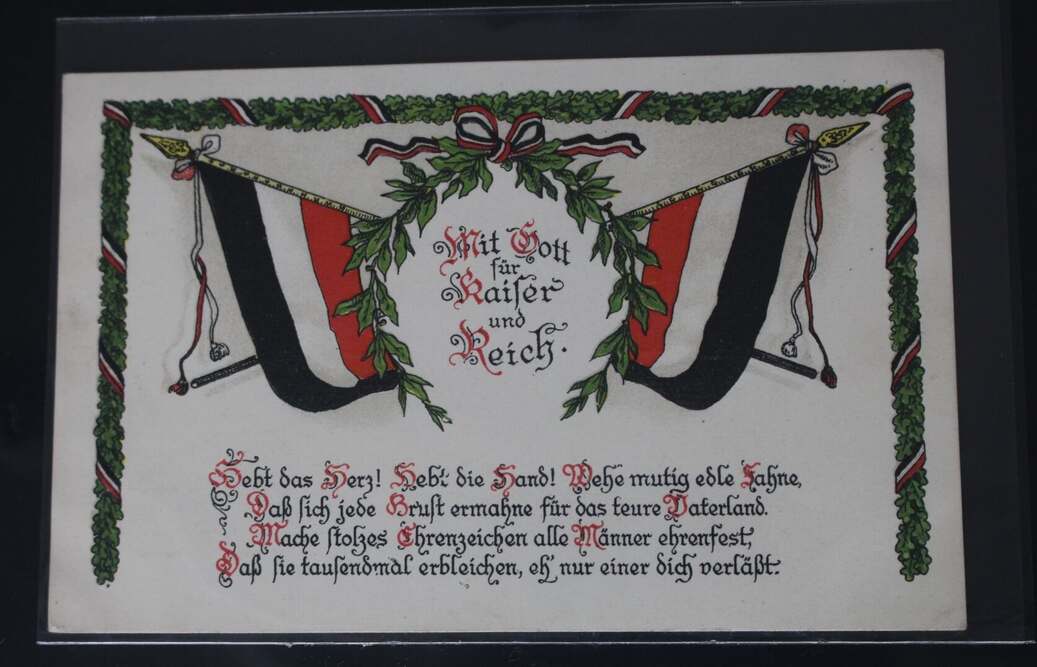 Mit Gott
für
Kaiser
und
Reich.
Hebt das Herz! Hebt die Hand! Wehe mutig edle Fahne,
Daß sich jede Brust ermahne für das teure Vaterland.
Mache stolzes Ehrenzeichen alle Männer ehrenfest,
Daß sie tausendmal erbleichen, eh' nur einer dich verläßt.